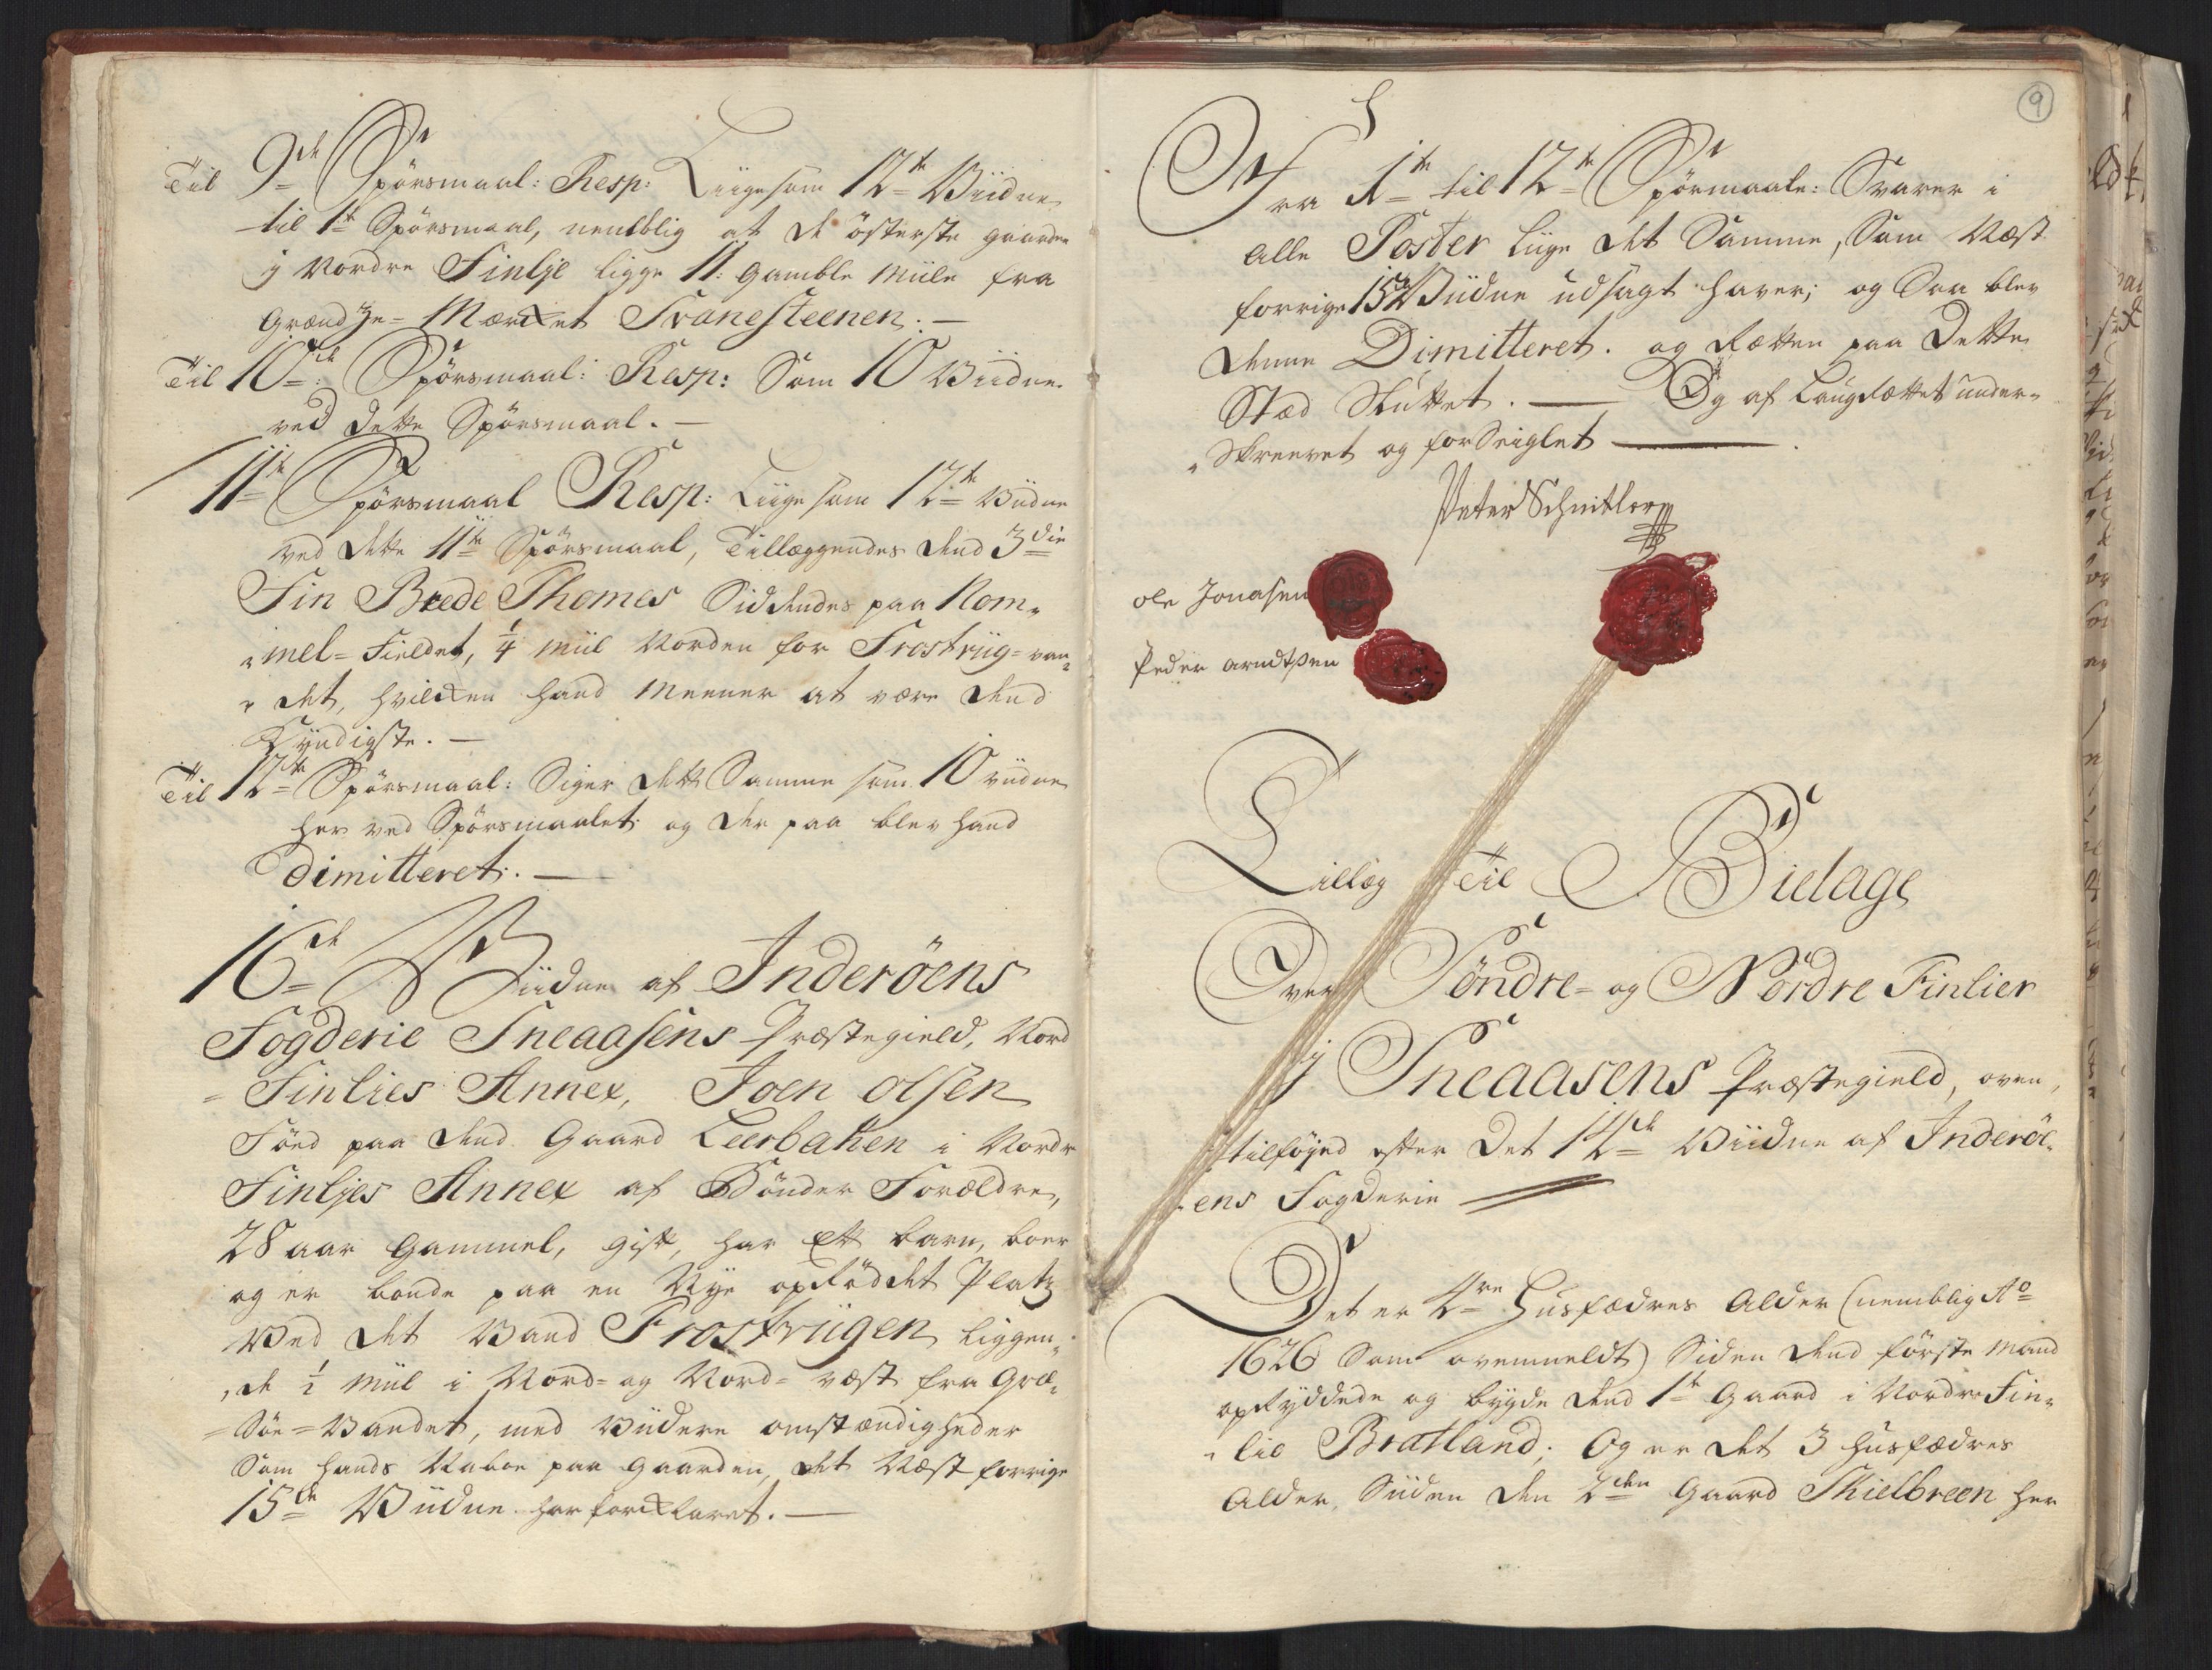 Til 9de Spörsmaal: Resp: Liigesom 12te Viidne
til 1te Spörsmaal, nemblig at de österste gaarder
i Nordre Finlje ligge 11: gamble Miile fra
Grændze-Mærcket Svanesteenen: —
Til 10de: Spörsmaal: Resp: Som 10 Viidne
ved dette Spörsmaal. —
11te Spörsmaal Resp: Liigesom 12te Viidne
ved dette 11te Spörsmaal, Tillæggendes dend 3die
Fin Brede Thomes Siddendes paa Rom-
mel-Fieldet, 1/4 Miil Norden for Frostviig-van-
det, hvilcken hand Meener at være dend
Kyndigste. —
Til 12te Spörsmaal: Siger dett Samme som 10 viidne
her ved Spörsmaalet og der paa blev hand
Dimitteret. —
16de Viidne af Inderöens
Fogderie Sneaasens Præstegield, Nord
-Finlies Annex, Joen Olsen
Föed paa dend Gaard Leerbaken i Nordr
Finljes Annex af Bönder Forældre,
28 aar gammel, gift, har Ett barn, boer
og er bonde paa en Nye opRöddet Platz
ved det Vand Frostviigen liggen-
de 1/2 Miil i Nord- og Nord-væst fra Qvæ-
-Söe-Vandet, med Viidere omstændigheder
Som hands Naboe paa gaarden, det Næst forrige
15de Viidne har forcklaret. —
9
Fra 1te til 12te Spörmaale: Svarer i
Alle Poster liige det Samme, Som Næst
forrige 15de Viidne udsagt haver; og Saa blev
denne Dimitteret. og Rætten paa Dette
Stæd Sluttet. — Og af LaugRættet under-
skreevet og forseiglet —
Peter Schnitler
ole Jonasen
Peder arndtsen
Tillæg til Bielage
Over Söndre- og Nordre Finlier
i Sneaasens Præstegield, oven
tilföjed efter Det 14de Viidne af Inderöe-
ens Fogderie
Det er 4re Husfædres Alder (nemblig Ao
1626 Som ovenmeldt) Siden dend förste Mand
opRyddede og bygde dend 1te Gaard i Nordre Fin-
lie Bratland; Og er det 3 Husfædres
Alder, Siiden den 2den Gaard Skielbreen her